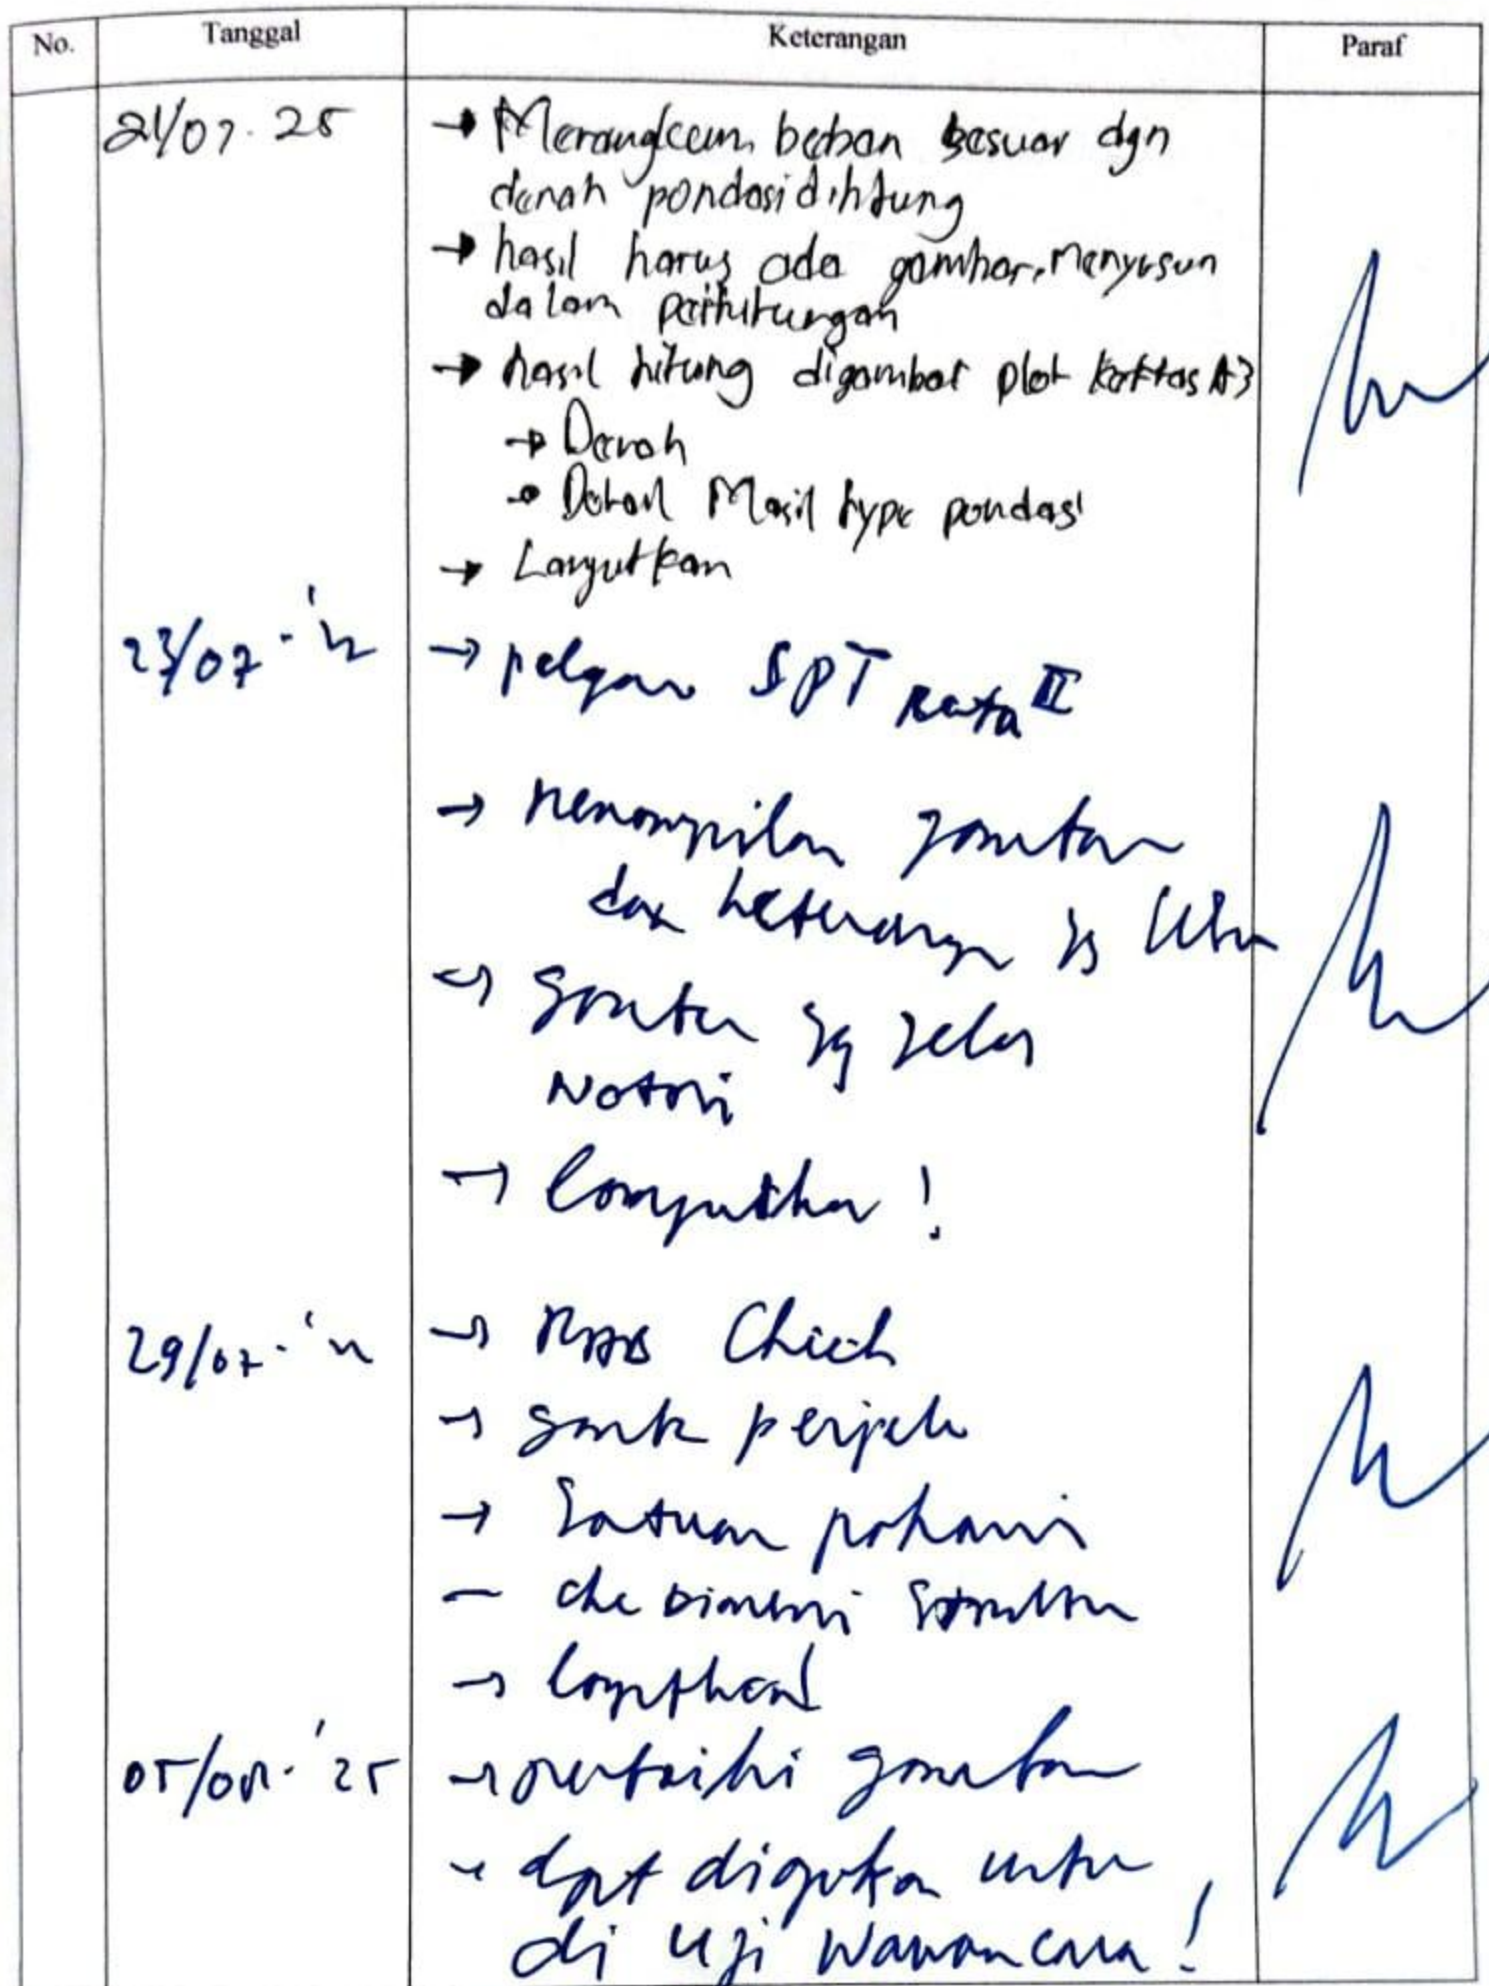 No. Tanggal Keterangan Paraf
21/07.25 → Merangkum beban sesuai dgn
denah pondasi dihitung
→ hasil harus ada gambar, Menyusun
dalam perhitungan
→ hasil hitung digambar plot kertas A3
→ Denah
→ Detail Hasil type pondasi
→ Lanjutkan
23/07 → SPT Rata
→ Menampilan gambar
dan keterangan yg
→ gambar yg jelas
Notasi
→ Lanjutkan!
29/07 → RAB Check
→ perjelas
→ Satuan
- Dimensi Struktur
→ Lanjutkan!
05/08.'25 → perbaiki gambar
dpt diajukan untuk
di Uji Wawancara!